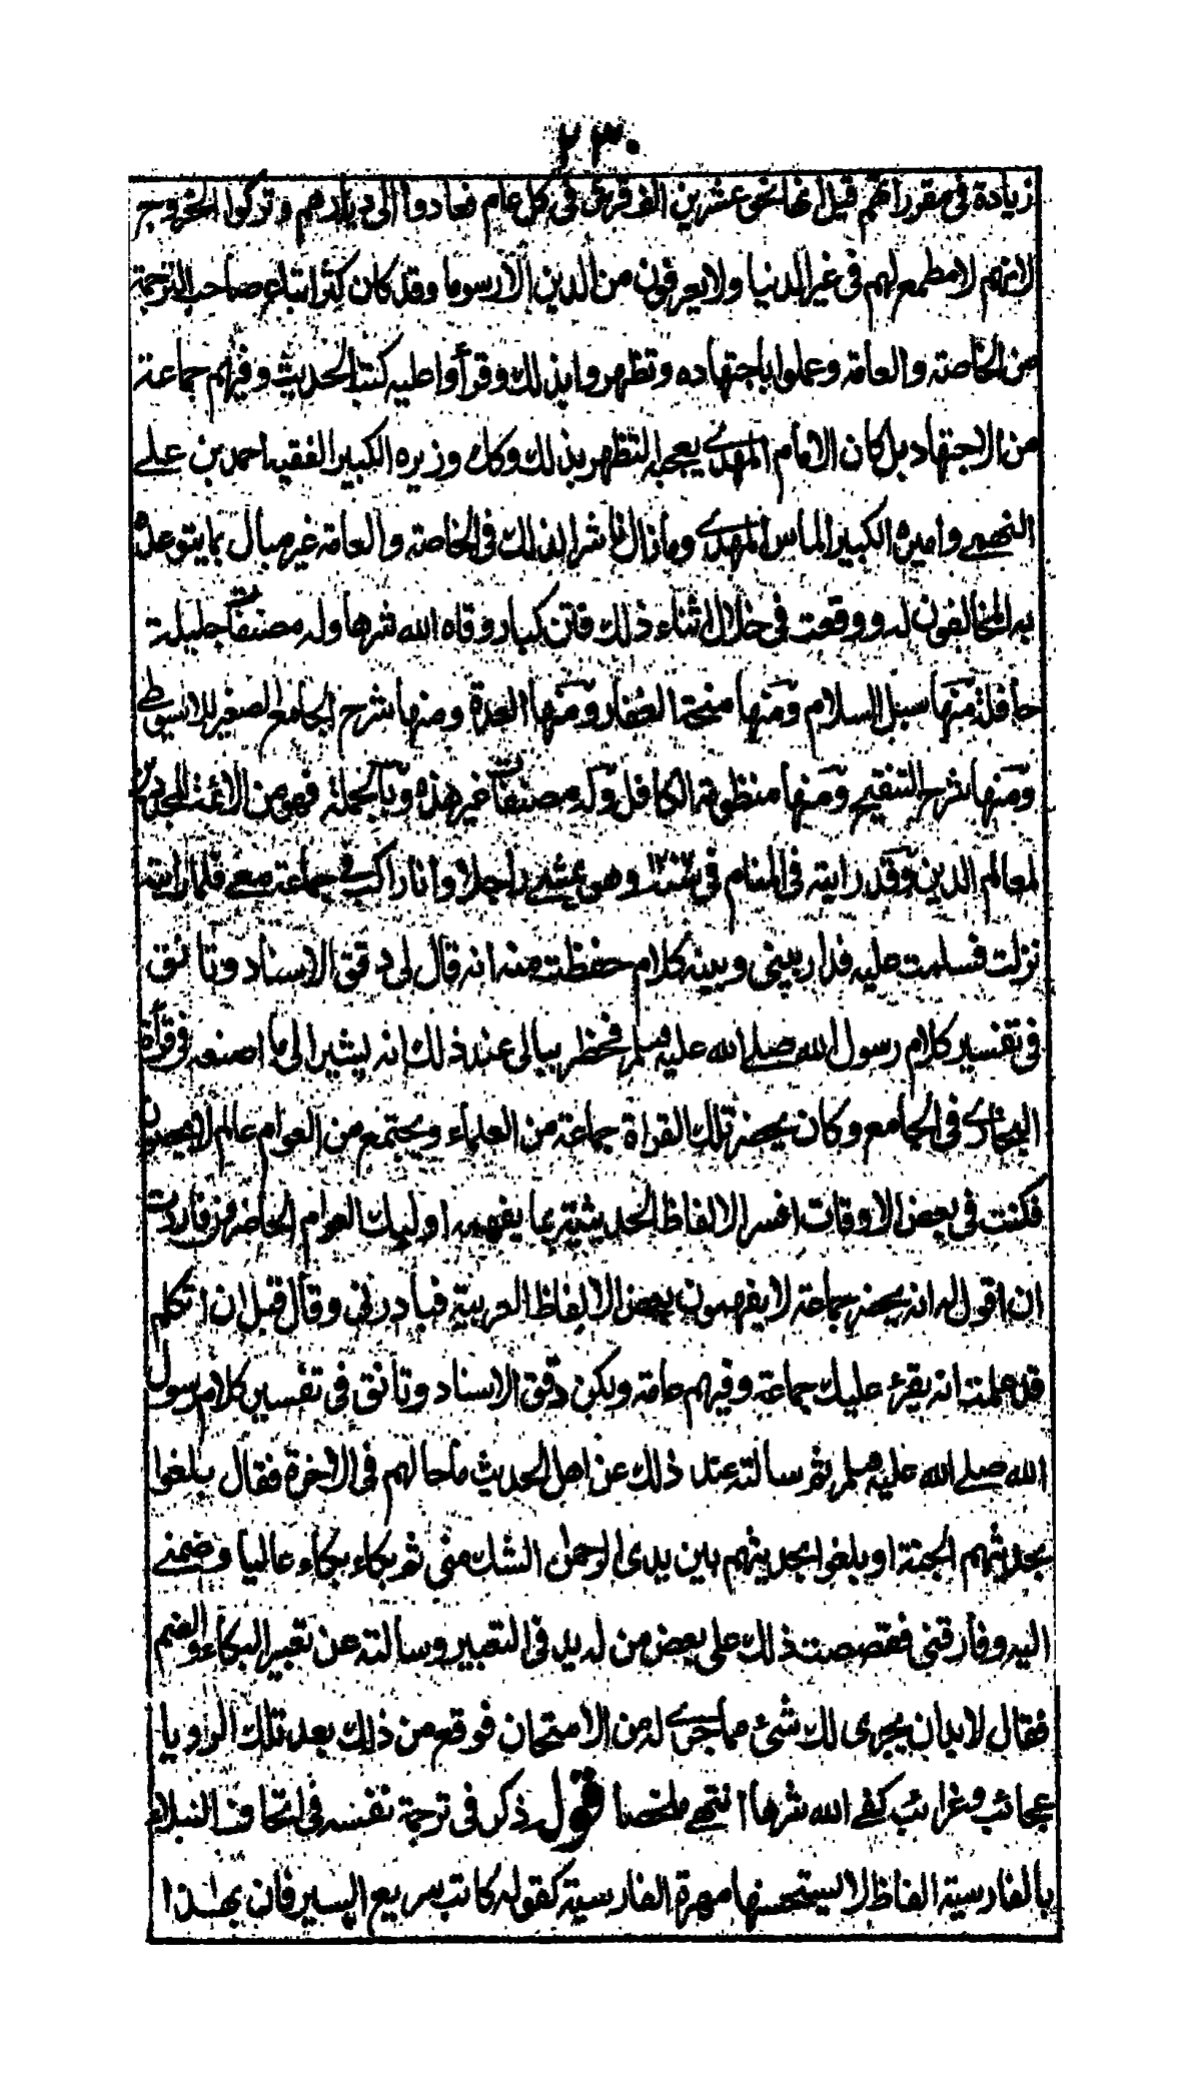 ٢٣٠
زيادة فى مقرراتهم قيل انها نحو عشرين الف قرش فى كل عام فعادوا الى ديارهم وتركوا الخروج
لانهم لا مطمع لهم فى غير الدنيا ولا يعرفون من الدين الا رسوما وقد كان كثر اتباع صاحب الترجمة
من الخاصة والعامة وعملوا باجتهاده وتظهروا بذلك وقرأوا عليه كتب الحديث وفيهم جماعة
من الاجناد بل كان الامام المهدى يعجبه التظهر بذلك وكان وزيره الكبير الفقيه احمد بن على
النهمى واميره الكبير الماس المهدى وما زال ناشرا لذلك فى الخاصة والعامة غير مبال بما يتوعده
به المخالفون له ووقعت فى خلال اثناء ذلك فتن كبار وقاه الله شرها وله مصنفات جليلة
حافلة منها سبل السلام ومنها منحة الغفار ومنها العدة ومنها شرح الجامع الصغير للاسيوطى
ومنها شرح التنقيح ومنها منظومة الكافل وله مصنفات غير هذه وبالجملة فهو من الائمة المجددين
لمعالم الدين وقد رايته فى المنام فى وهو يمشى راجلا وانا راكب فى جماعة معى فلما رايته
نزلت فسلمت عليه فدار بينى وبينه كلام حفظت منه انه قال لى دقق الاسناد وتانق
فى تفسير كلام رسول الله صلى الله عليه وسلم فخطر ببالى عند ذلك انه يشير الى ما اصنعه فى قرأة
البخارى فى الجامع وكان يحضر تلك القراة جماعة من العلماء ويجتمع من العوام عالم لا يحصون
فكنت فى بعض الاوقات افسر الالفاظ الحديثية بما يفهمه اوليك العوام الحاضرون فاردت
ان اقول له انه يحضر جماعة لا يفهمون بعض الالفاظ العربية فبادرنى وقال قبل ان اتكلم
قد علمت انه يقرء عليك جماعة وفيهم عامة ولكن دقق الاسناد وتانق فى تفسير كلام رسول
الله صلى الله عليه وسلم ثم سالته عند ذلك عن اهل الحديث ما حالهم فى الاخرة فقال بلغوا
بحديثهم الجنة او بلغوا بحديثهم بين يدى الرحمن الشك منى ثم بكاء بكاء عاليا وضمنى
اليه وفارقنى فقصصت ذلك على بعض من له يد فى التعبير وسالته عن تعبير البكاء والضم
فقال لا بد ان يجرى لك شئ مما جرى له من الامتحان فوقع من ذلك بعد تلك الراويا
عجائب وغرائب كفى الله شرها انتهى ملخصا قول ذكر فى ترجمة نفسه فى اتحاف النبلاء
بالفارسية الفاظا لا يستحسنها مهرة الفارسية كقوله كاتب سريع السير فان بهذا